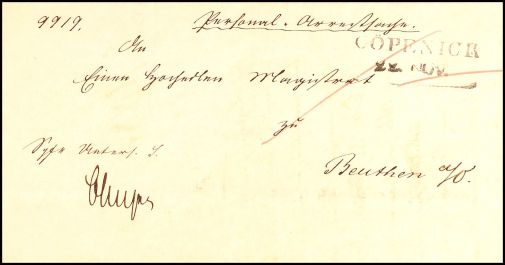 9919.
Personal-Arrestsache.
An
CÖPENICK
22 NOV.
Einen Hochedlen Magistrat
zu
Beuthen a/O.